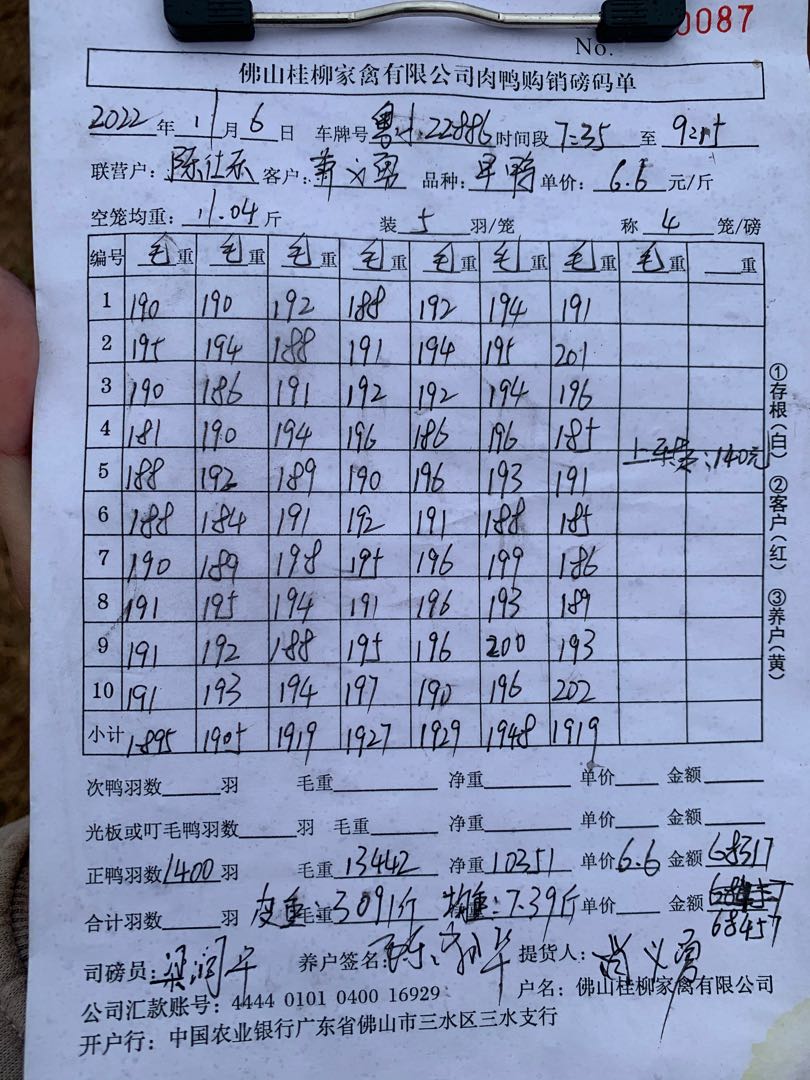 No. 0087
佛山桂柳家禽有限公司肉鸭购销磅码单
2022 年 11 月 6 日 车牌号 22886 时间段 7:35 至 9:15
联营户: 陈仕 客户: 萧义勇 品种: 单价: 6.6 元/斤
空笼均重: 11.04 斤 装 5 羽/笼 称 4 笼/磅
编号 毛重 毛重 毛重 毛重 毛重 毛重 毛重 毛重 重
1 190 190 192 188 192 194 191
2 195 194 188 191 194 195 201
3 190 186 191 192 192 194 196
4 181 190 194 196 186 196 185 上车费:140元
5 188 192 189 190 196 193 191
6 188 184 191 192 191 188 185
7 190 189 198 195 196 199 186
8 191 195 194 191 196 193 189
9 191 192 188 195 196 200 193
10 191 193 194 197 190 196 202
小计 1895 1905 1919 1927 1929 1948 1919
①存根(白) ②客户(红) ③养户(黄)
次鸭羽数 羽 毛重 净重 单价 金额
光板或叮毛鸭羽数 羽 毛重 净重 单价 金额
正鸭羽数 1400 羽 毛重 13442 净重 10351 单价 6.6 金额 68317
合计羽数 羽 皮重:毛重 3091斤 均重:7.39斤 单价 金额
68457
司磅员: 梁润华 养户签名: 陈 提货人: 萧义勇
公司汇款账号: 4444 0101 0400 16929 户名: 佛山桂柳家禽有限公司
开户行: 中国农业银行广东省佛山市三水区三水支行